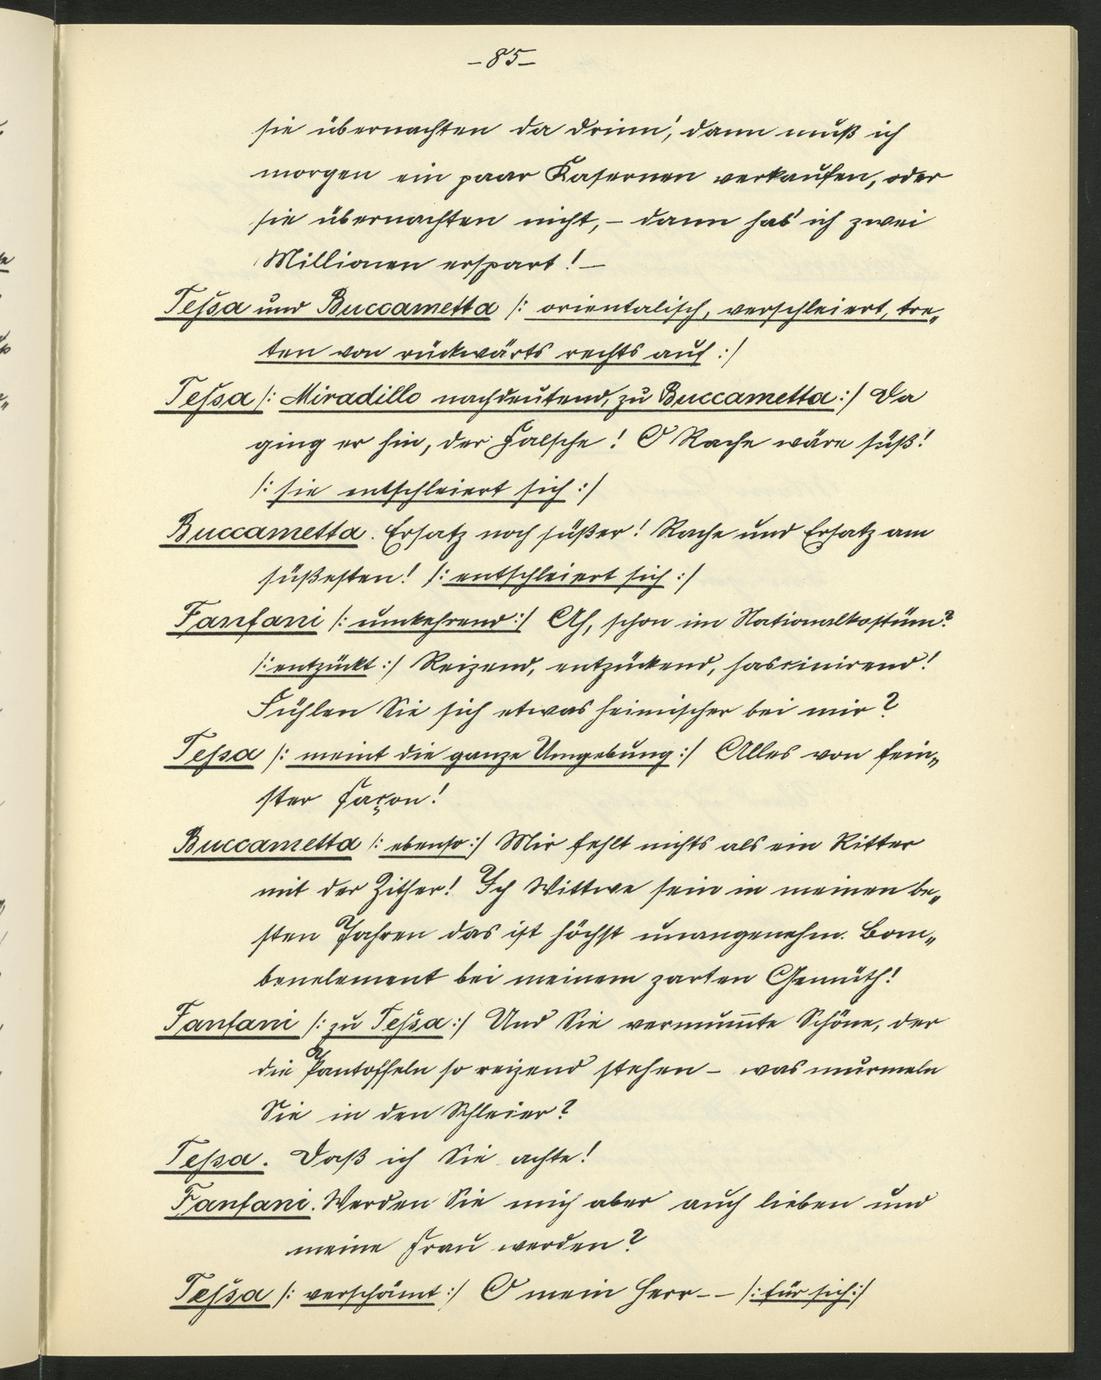 –85–
sie übernachten da drinn', dann muß ich
morgen ein paar Kasernen verkaufen, oder
sie übernachten nicht, – dann hab' ich zwei
Millionen erspart! –
Tessa und Buccametta /: orientalisch, verschleiert, tre„
ten von rückwärts rechts auf :/
Tessa /: Miradillo nachdeutend, zu Buccametta :/ Da
ging er hin, der Falsche! O Rache wäre süß!
/: sie entschleiert sich :/
Buccametta. Ersatz noch süßer! Rache und Ersatz am
süßesten! /: entschleiert sich :/
Fanfani /: umkehrend :/ Ah, schon im Nationalkostüm?
/: entzückt :/ Reizend, entzückend, fascinirend!
Fühlen Sie sich etwas heimischer bei mir?
Tessa /: meint die ganze Umgebung :/ Alles von fein„
ster Façon!
Buccametta /: ebenso :/ Mir fehlt nichts als ein Ritter
mit der Zither! Ich Wittwe sein in meinen be„
sten Jahren das ist höchst unangenehm. Bom„
benelement bei meinem zarten Gemüth!
Fanfani /: zu Tessa :/ Und Sie vermum̄te Schöne, der
die Pantoffeln so reizend stehen – was murmeln
Sie in den Schleier?
Tessa. Daß ich Sie achte!
Fanfani. Werden Sie mich aber auch lieben und
meine Frau werden?
Tessa /: verschämt :/ O mein Herr – – /: für sich :/